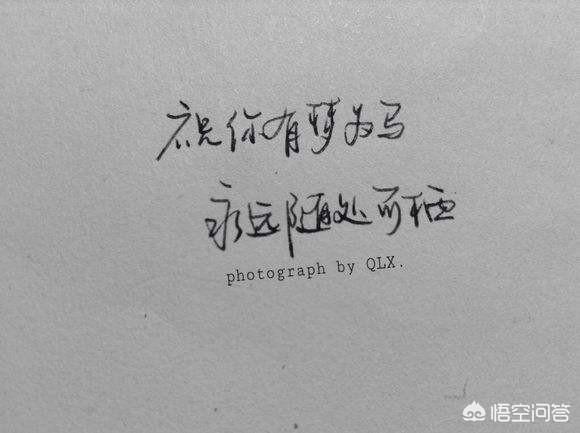 祝你有梦为马
永远随处可栖
photograph by QLX.
悟空问答